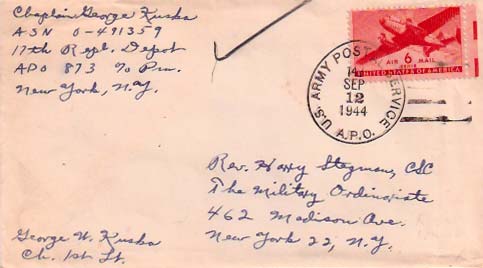 Chaplain George Kuska
ASN 0-491359
17th Repl. Depot
APO 873 % Pm.
New York, N.Y.
U.S. ARMY POSTAL SERVICE
14
SEP
12
1944
A.P.O.
AIR 6 MAIL
CENTS
UNITED STATES OF AMERICA
Rev. Harry Stegman, CSC
The Military Ordinariate
462 Madison Ave.
New York 22, N.Y.
George W. Kuska
Ch. 1st Lt.